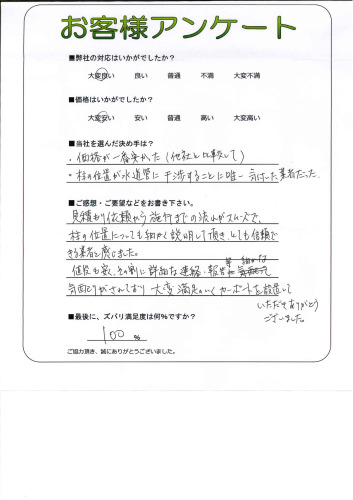 お客様アンケート
■弊社の対応はいかがでしたか？
大変良い 良い 普通 不満 大変不満
■価格はいかがでしたか？
大変安い 安い 普通 高い 大変高い
■当社を選んだ決め手は？
・価格が一番安かった（他社と比較して）
・柱の位置が水道管に干渉することに唯一気付いた業者だった。
■ご感想・ご要望などをお書き下さい。
見積もり依頼から施行までの流れがスムーズで、
柱の位置についても細かく説明して頂き、とても信頼で
きる業者と感じました。
値段も安く、その割に詳細な連絡・報告等 細かな
気配りがされており 大変満足のいくカーポートを設置して
いただきありがとう
ございました。
■最後に、ズバリ満足度は何％ですか？
100 ％
ご協力頂き、誠にありがとうございました。